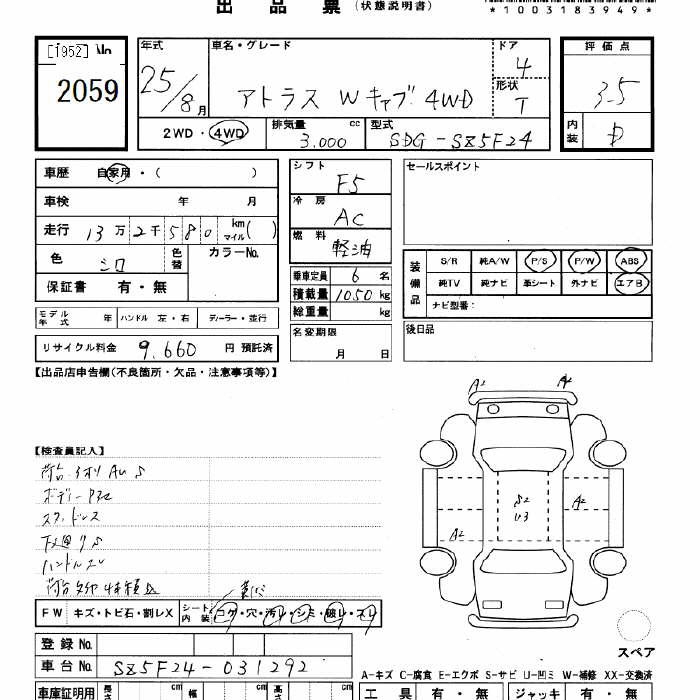 出品票 (状態説明書)
*1003183949*
[1952] No
2059
年式 25/8月
車名・グレード アトラス Wキャブ 4WD
ドア 4
形状 T
評価点 3.5
内装 D
2WD・4WD
排気量 3.000 cc
型式 SDG-SZ5F24
車歴 自家用・( )
車検 年 月
走行 13万2千580 km マイル( )
色 シロ 色替 カラーNo.
保証書 有・無
シフト F5
冷房 AC
燃料 軽油
乗車定員 6名
積載量 1050 kg
総重量 kg
セールスポイント
装備品 S/R 純A/W P/S P/W ABS
純TV 純ナビ 革シート 外ナビ エアB
ナビ型番:
モデル年式 年 ハンドル 左・右 ディーラー・並行
名変期限 月 日
後日品
リサイクル料金 9.660 円 預託済
【出品店申告欄(不良箇所・欠品・注意事項等)】
A2 A2
【検査員記入】
ボディーP跡
スタッドレス
下廻りS
ハンドルスレ
S2
U3
A2
A2
FW キズ・トビ石・割レX シート内装 コゲ・穴・汚レ・シミ・破レ・スレ
登録No.
車台No. SZ5F24-031292
スペア
A-キズ C-腐食 E-エクボ S-サビ U-凹ミ W-補修 XX-交換済
車庫証明用 長さ cm 幅 cm 高さ cm
工具 有・無 ジャッキ 有・無